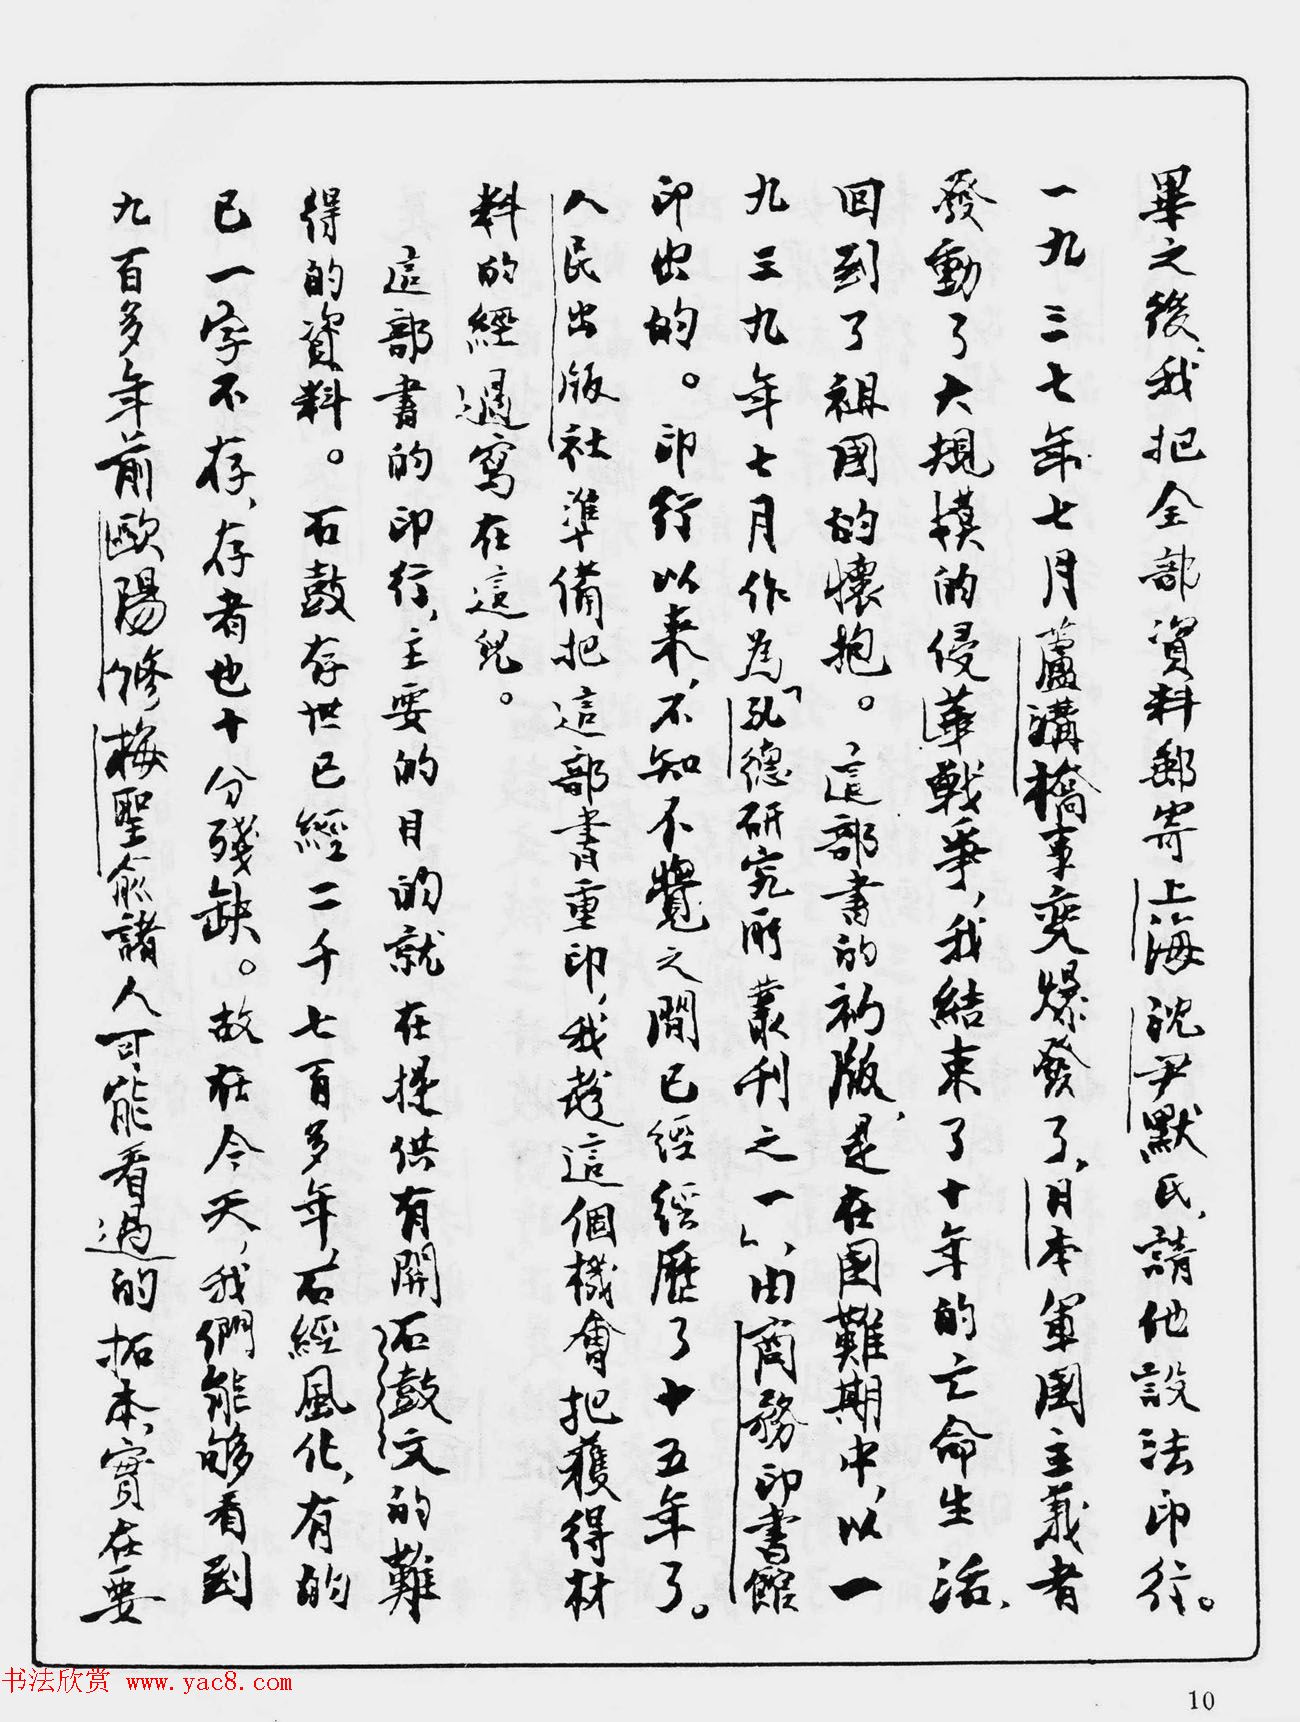 畢之後，我把全部資料郵寄上海沈尹默氏，請他設法印行。
一九三七年七月蘆溝橋事變爆發了，日本軍國主義者
發動了大規模的侵華戰爭，我結束了十年的亡命生活，
回到了祖國的懷抱。這部書的初版，是在國難期中，以一
九三九年七月作為「孔德研究所叢刊之一」，由商務印書館
印出的。印行以來，不知不覺之間已經經歷了十五年了。
人民出版社準備把這部書重印，我趁這個機會把獲得材
料的經過寫在這兒。
這部書的印行，主要的目的就在提供有關石鼓文的難
得的資料。石鼓存世已經二千七百多年，石經風化，有的
已一字不存，存者也十分殘缺。故在今天，我們能够看到
九百多年前歐陽修梅聖俞諸人可能看過的拓本，實在要
10
书法欣赏 www.yac8.com